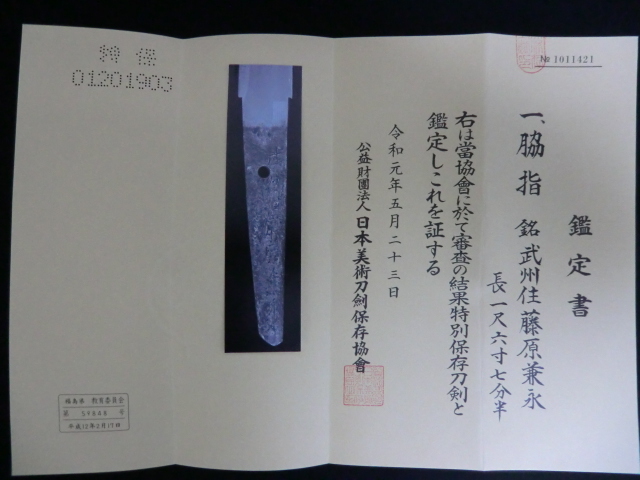 № 1011421
鑑定書
一、脇指 銘 武州住藤原兼永
長一尺六寸七分半
右は當協會に於て審査の結果特別保存刀剣と
鑑定しこれを証する
令和元年五月二十三日
公益財團法人日本美術刀劍保存協會
特保
01201903
福島県 教育委員会
第 57826 号
平成12年2月17日